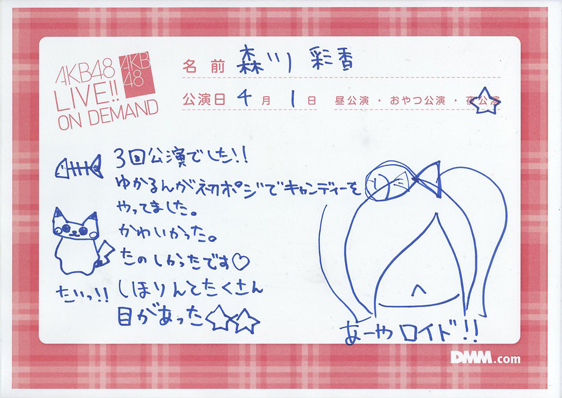 AKB48
LIVE!!
ON DEMAND
AKB
48
名前 森川 彩香
公演日 4月 1日 昼公演・おやつ公演・夜公演
3回公演でした!!
ゆかるんが初ポジでキャンディーを
やってました。
かわいかった。
たのしかったです♡
たいっ!! しほりんとたくさん
目があった☆☆
あーやロイド!!
DMM.com